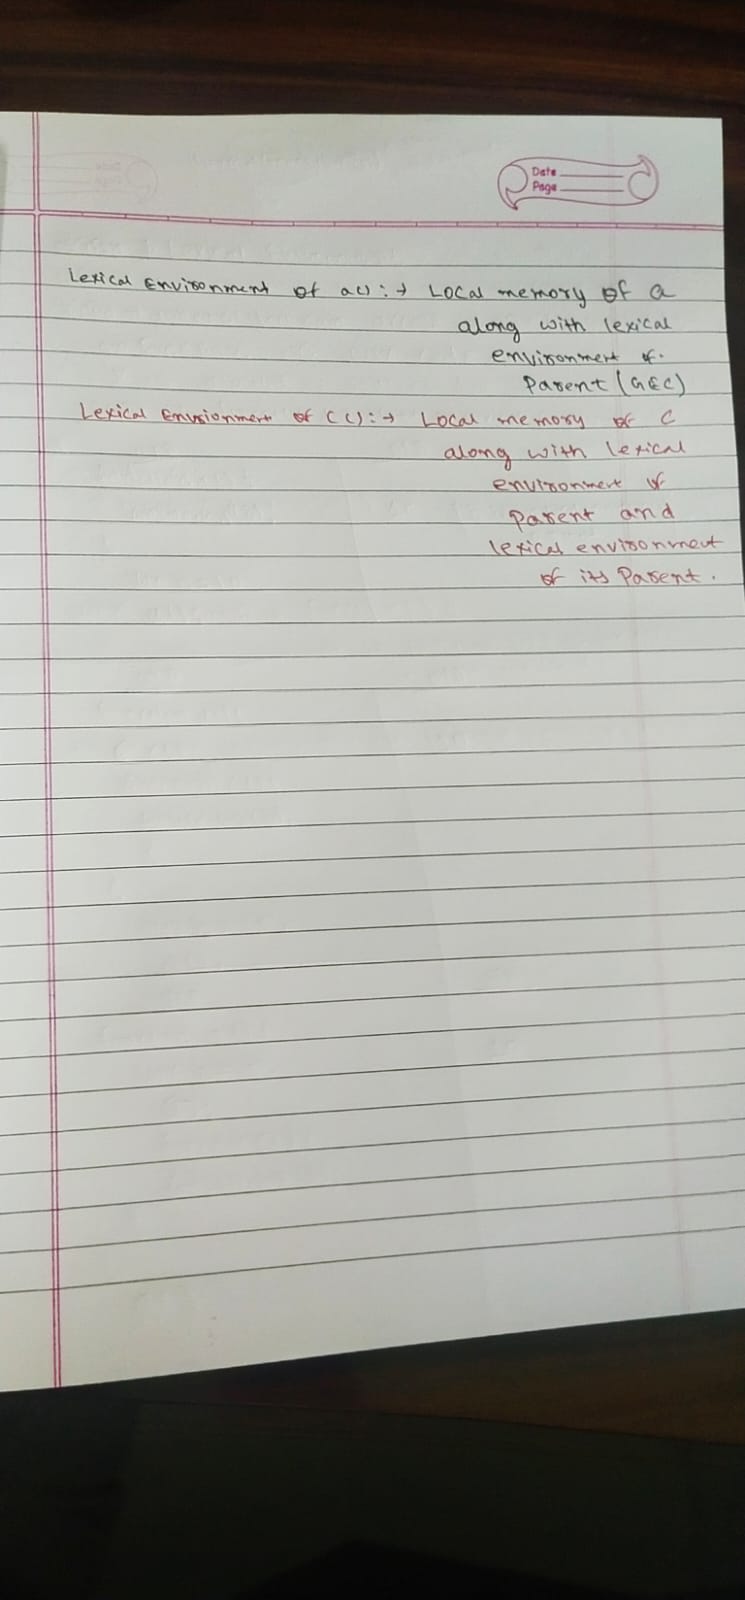 Date
Page
Lexical Environment of a() :→ Local memory of a
along with lexical
environment of
Parent (GEC)
Lexical Envsionment of c() :→ Local memory of c
along with lexical
environment of
Parent and
lexical environment
of its Parent.